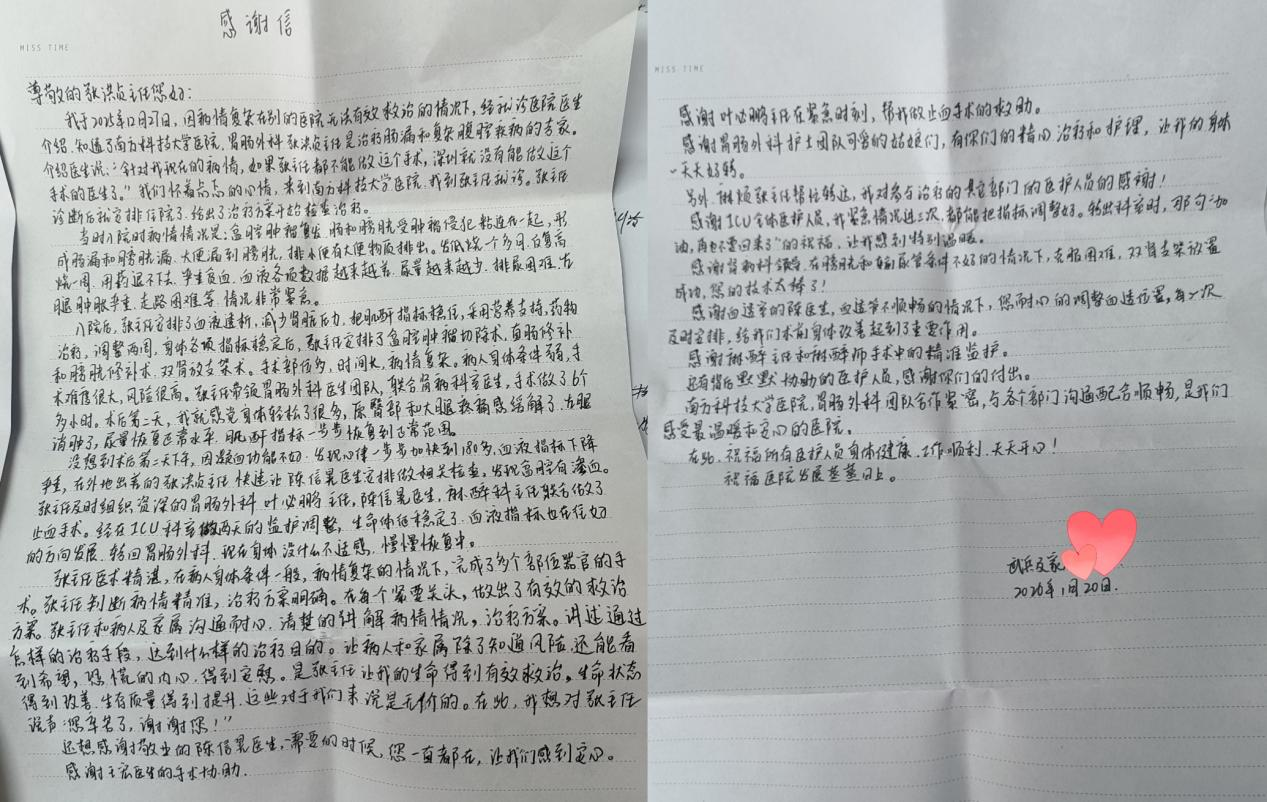 感谢信
MISS TIME
尊敬的张洪贞主任您好：
我于2025年12月27日，因病情复杂在别的医院无法有效救治的情况下，经就诊医院医生
介绍，知道了南方科技大学医院，胃肠外科张洪贞主任是治疗肠漏和复杂腹腔疾病的专家。
介绍医生说："针对我现在的病情，如果张主任都不能做这个手术，深圳就没有能做这个
手术的医生了。"我们怀着忐忑的心情，来到南方科技大学医院，找到张主任就诊。张主任
诊断后就安排住院了，给出了治疗方案开始检查治疗。
当时入院时病情情况是：盆腔肿瘤复发，肠和膀胱受肿瘤侵犯粘连在一起，形
成肠漏和膀胱漏，大便漏到膀胱，排小便有大便物质排出。发低烧一个多月，后复高
烧一周，用药退不下去，严重贫血，血液各项数据越来越差，尿量越来越少，排尿困难，左
腿肿胀严重，走路困难等，情况非常紧急。
入院后，张主任安排了血液透析，减少肾脏压力，把肌酐指标稳住，采用营养支持，药物
治疗，调整两周，身体各项指标稳定后，张主任安排了盆腔肿瘤切除术，直肠修补
和膀胱修补术，双肾放支架术。手术部位多，时间长，病情复杂。病人身体条件弱，手
术难度很大，风险很高。张主任带领胃肠外科医生团队，联合肾病科室医生，手术做了6个
多小时。术后第二天，我就感觉身体轻松了很多，原臀部和大腿疼痛感缓解了，左腿
消肿了，尿量恢复正常水平，肌酐指标一步步恢复到正常范围。
没想到术后第二天下午，因凝血功能不好，发现心律一步步加快到180多，血液指标下降
严重，在外地出差的张洪贞主任快速让陈信晃医生安排做相关检查，发现盆腔有渗血。
张主任及时组织资深的胃肠外科叶必鹏主任，陈信晃医生，麻醉科主任联合做了
止血手术。经在ICU科室两天的监护调整，生命体征稳定了，血液指标也在往好
的方向发展，转回胃肠外科，现在身体没什么不适感，慢慢恢复中。
张主任医术精湛，在病人身体条件一般，病情复杂的情况下，完成了多个部位器官的手
术。张主任判断病情精准，治疗方案明确。在每个紧要关头，做出了有效的救治
方案。张主任和病人及家属沟通耐心，清楚的讲解病情情况，治疗方案。讲述通过
怎样的治疗手段，达到什么样的治疗目的。让病人和家属除了知道风险，还能看
到希望，恐慌的内心得到安慰。是张主任让我的生命得到有效救治，生命状态
得到改善，生存质量得到提升，这些对于我们来说是无价的。在此，我想对张主任
说声"您辛苦了，谢谢您！"
还想感谢敬业的陈信晃医生，需要的时候，您一直都在，让我们感到安心。
感谢王宏医生的手术协助。
MISS TIME
感谢叶必鹏主任在紧急时刻，帮我做止血手术的救助。
感谢胃肠外科护士团队可爱的姑娘们，有你们的精心治疗和护理，让我的身体
一天天好转。
另外，麻烦张主任帮忙转达，我对参与治疗的其它部门的医护人员的感谢！
感谢ICU全体医护人员，我紧急情况进三次，都能把指标调整好。转出科室时，那句"加
油，再也不要回来了"的祝福，让我感到特别温暖。
感谢肾病科领导，在膀胱和输尿管条件不好的情况下，克服困难，双肾支架放置
成功，您的技术太棒了！
感谢血透室的陈医生，血透管不顺畅的情况下，您耐心的调整血透位置，每一次
及时安排，给我们术前身体改善起到了重要作用。
感谢麻醉主任和麻醉师手术中的精准监护。
还有背后默默协助的医护人员，感谢你们的付出。
南方科技大学医院，胃肠外科团队合作紧密，与各个部门沟通配合顺畅，是我们
感受最温暖和安心的医院。
在此，祝福所有医护人员身体健康，工作顺利，天天开心！
祝福医院发展蒸蒸日上。
2026年1月20日.